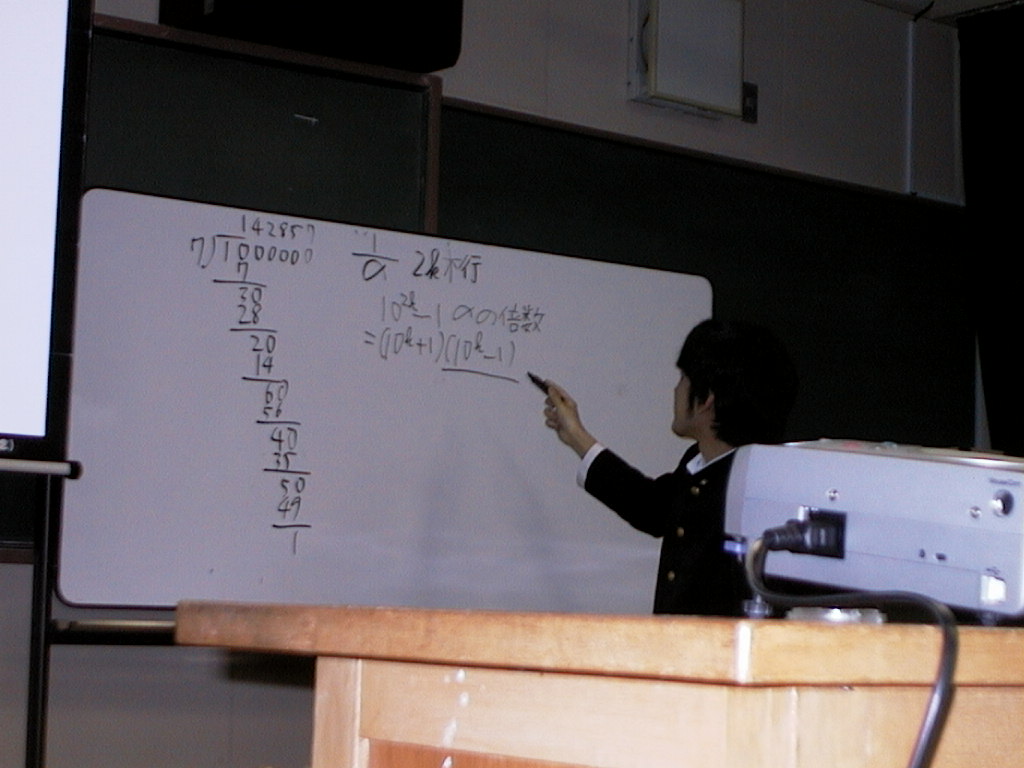 142857
7)1000000
7
30
28
20
14
60
56
40
35
50
49
1
1/a 2k桁
10^2k-1 aの倍数
=(10^k+1)(10^k-1)